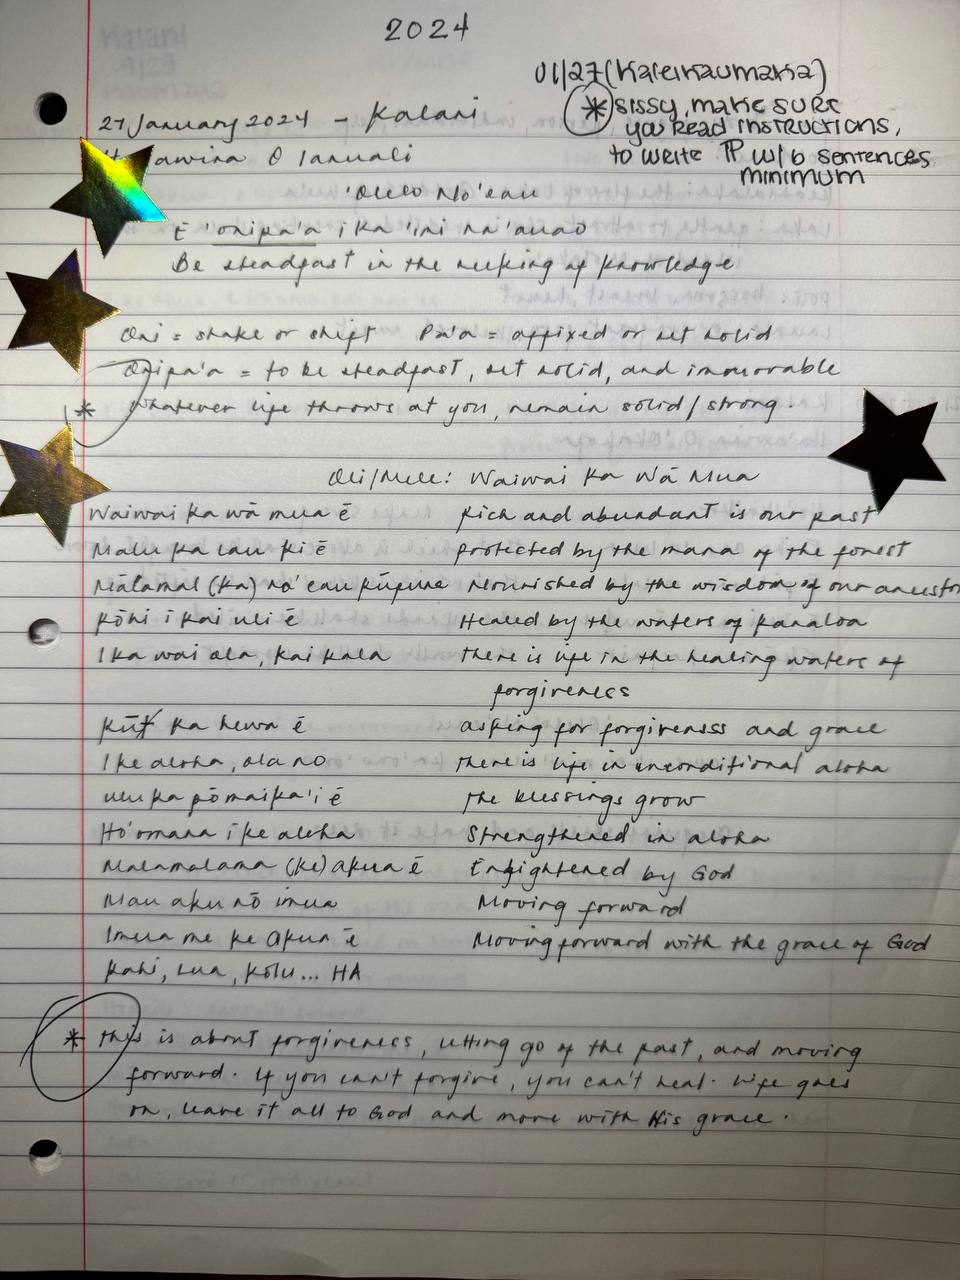 2024
01/27 (Kaleikaumaka)
* sissy, make sure
you read instructions,
to write TP w/ 6 sentences
minimum
27 January 2024 - Kalani
O Ianuali
'Ōlelo No'eau
E 'onipa'a i ka 'imi na'auao
Be steadfast in the seeking of knowledge
Oni = shake or shift Pa'a = affixed or set solid
Onipa'a = to be steadfast, set solid, and immovable
* Whatever life throws at you, remain solid/strong.
Oli/Mele: Waiwai Ka Wā Mua
Waiwai ka wā mua ē Rich and abundant is our past
Malu ka lau ki ē protected by the mana of the forest
Mālamal (ka) no'eau kūpuna Nourished by the wisdom of our ancesto
Kōhi i kai uli ē Healed by the waters of Kanaloa
I ka wai ola, kai kala There is life in the healing waters of
forgiveness
ka hewa ē asking for forgivenss and grace
I ke aloha, ola no There is life in unconditional aloha
ulu ka pōmaika'i ē The blessings grow
Ho'omana i ke aloha Strengthened in aloha
Malamalama (ke) akua ē Enlightened by God
Mau aku nō imua Moving forward
Imua me ke Akua ē Moving forward with the grace of God
Kahi, lua, kolu... HA
* This is about forgiveness, letting go of the past, and moving
forward. If you can't forgive, you can't heal. Life goes
on, leave it all to God and move with His grace.